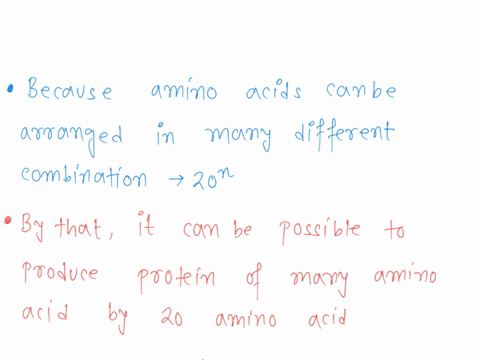 • Because amino acids canbe
arranged in many different
combination → 20ⁿ
• By that, it can be possible to
produce protein of many amino
acid by 20 amino acid